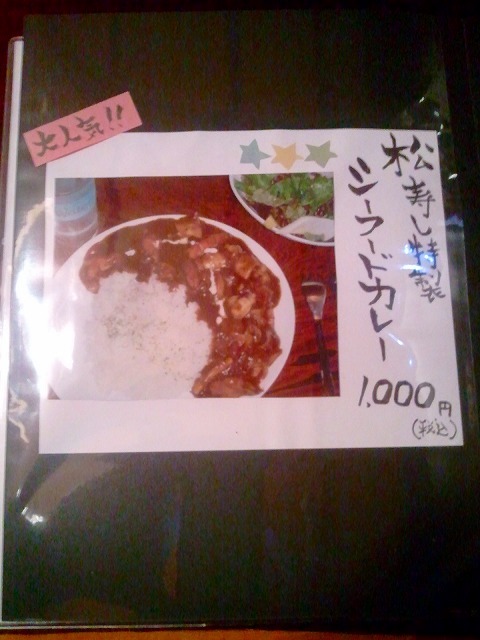 大人気!!
松寿し特製
シーフードカレー
1,000円
(税込)